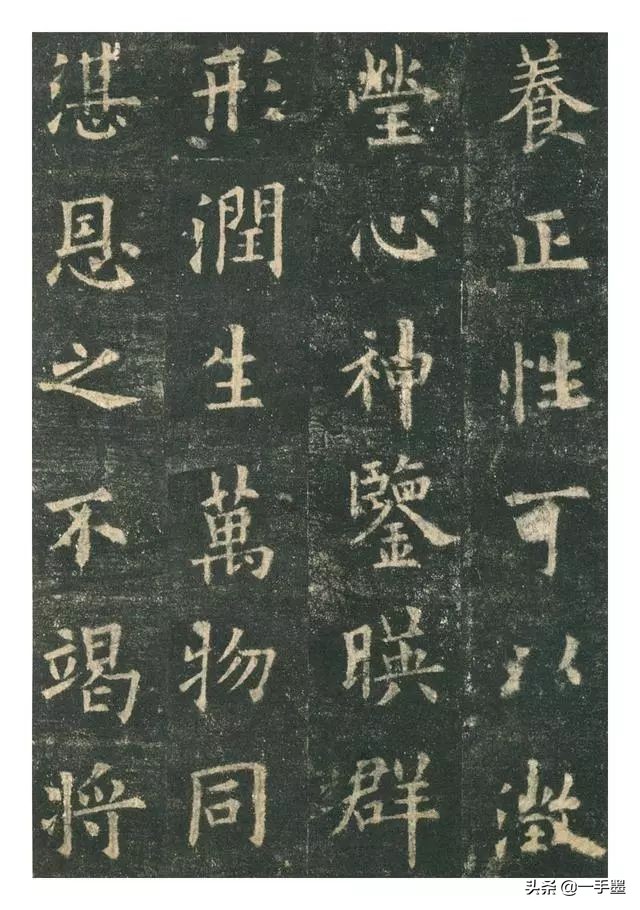 養正性可以澂
瑩心神鑒暎群
形潤生萬物同
湛恩之不竭將
头条 @一手墨